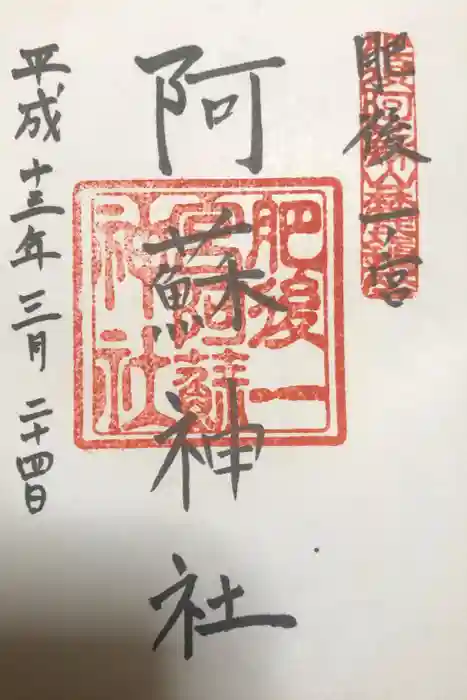 肥後一ノ宮
阿蘇神社
平成十三年三月二十四日
肥後一
宮阿蘇
神社